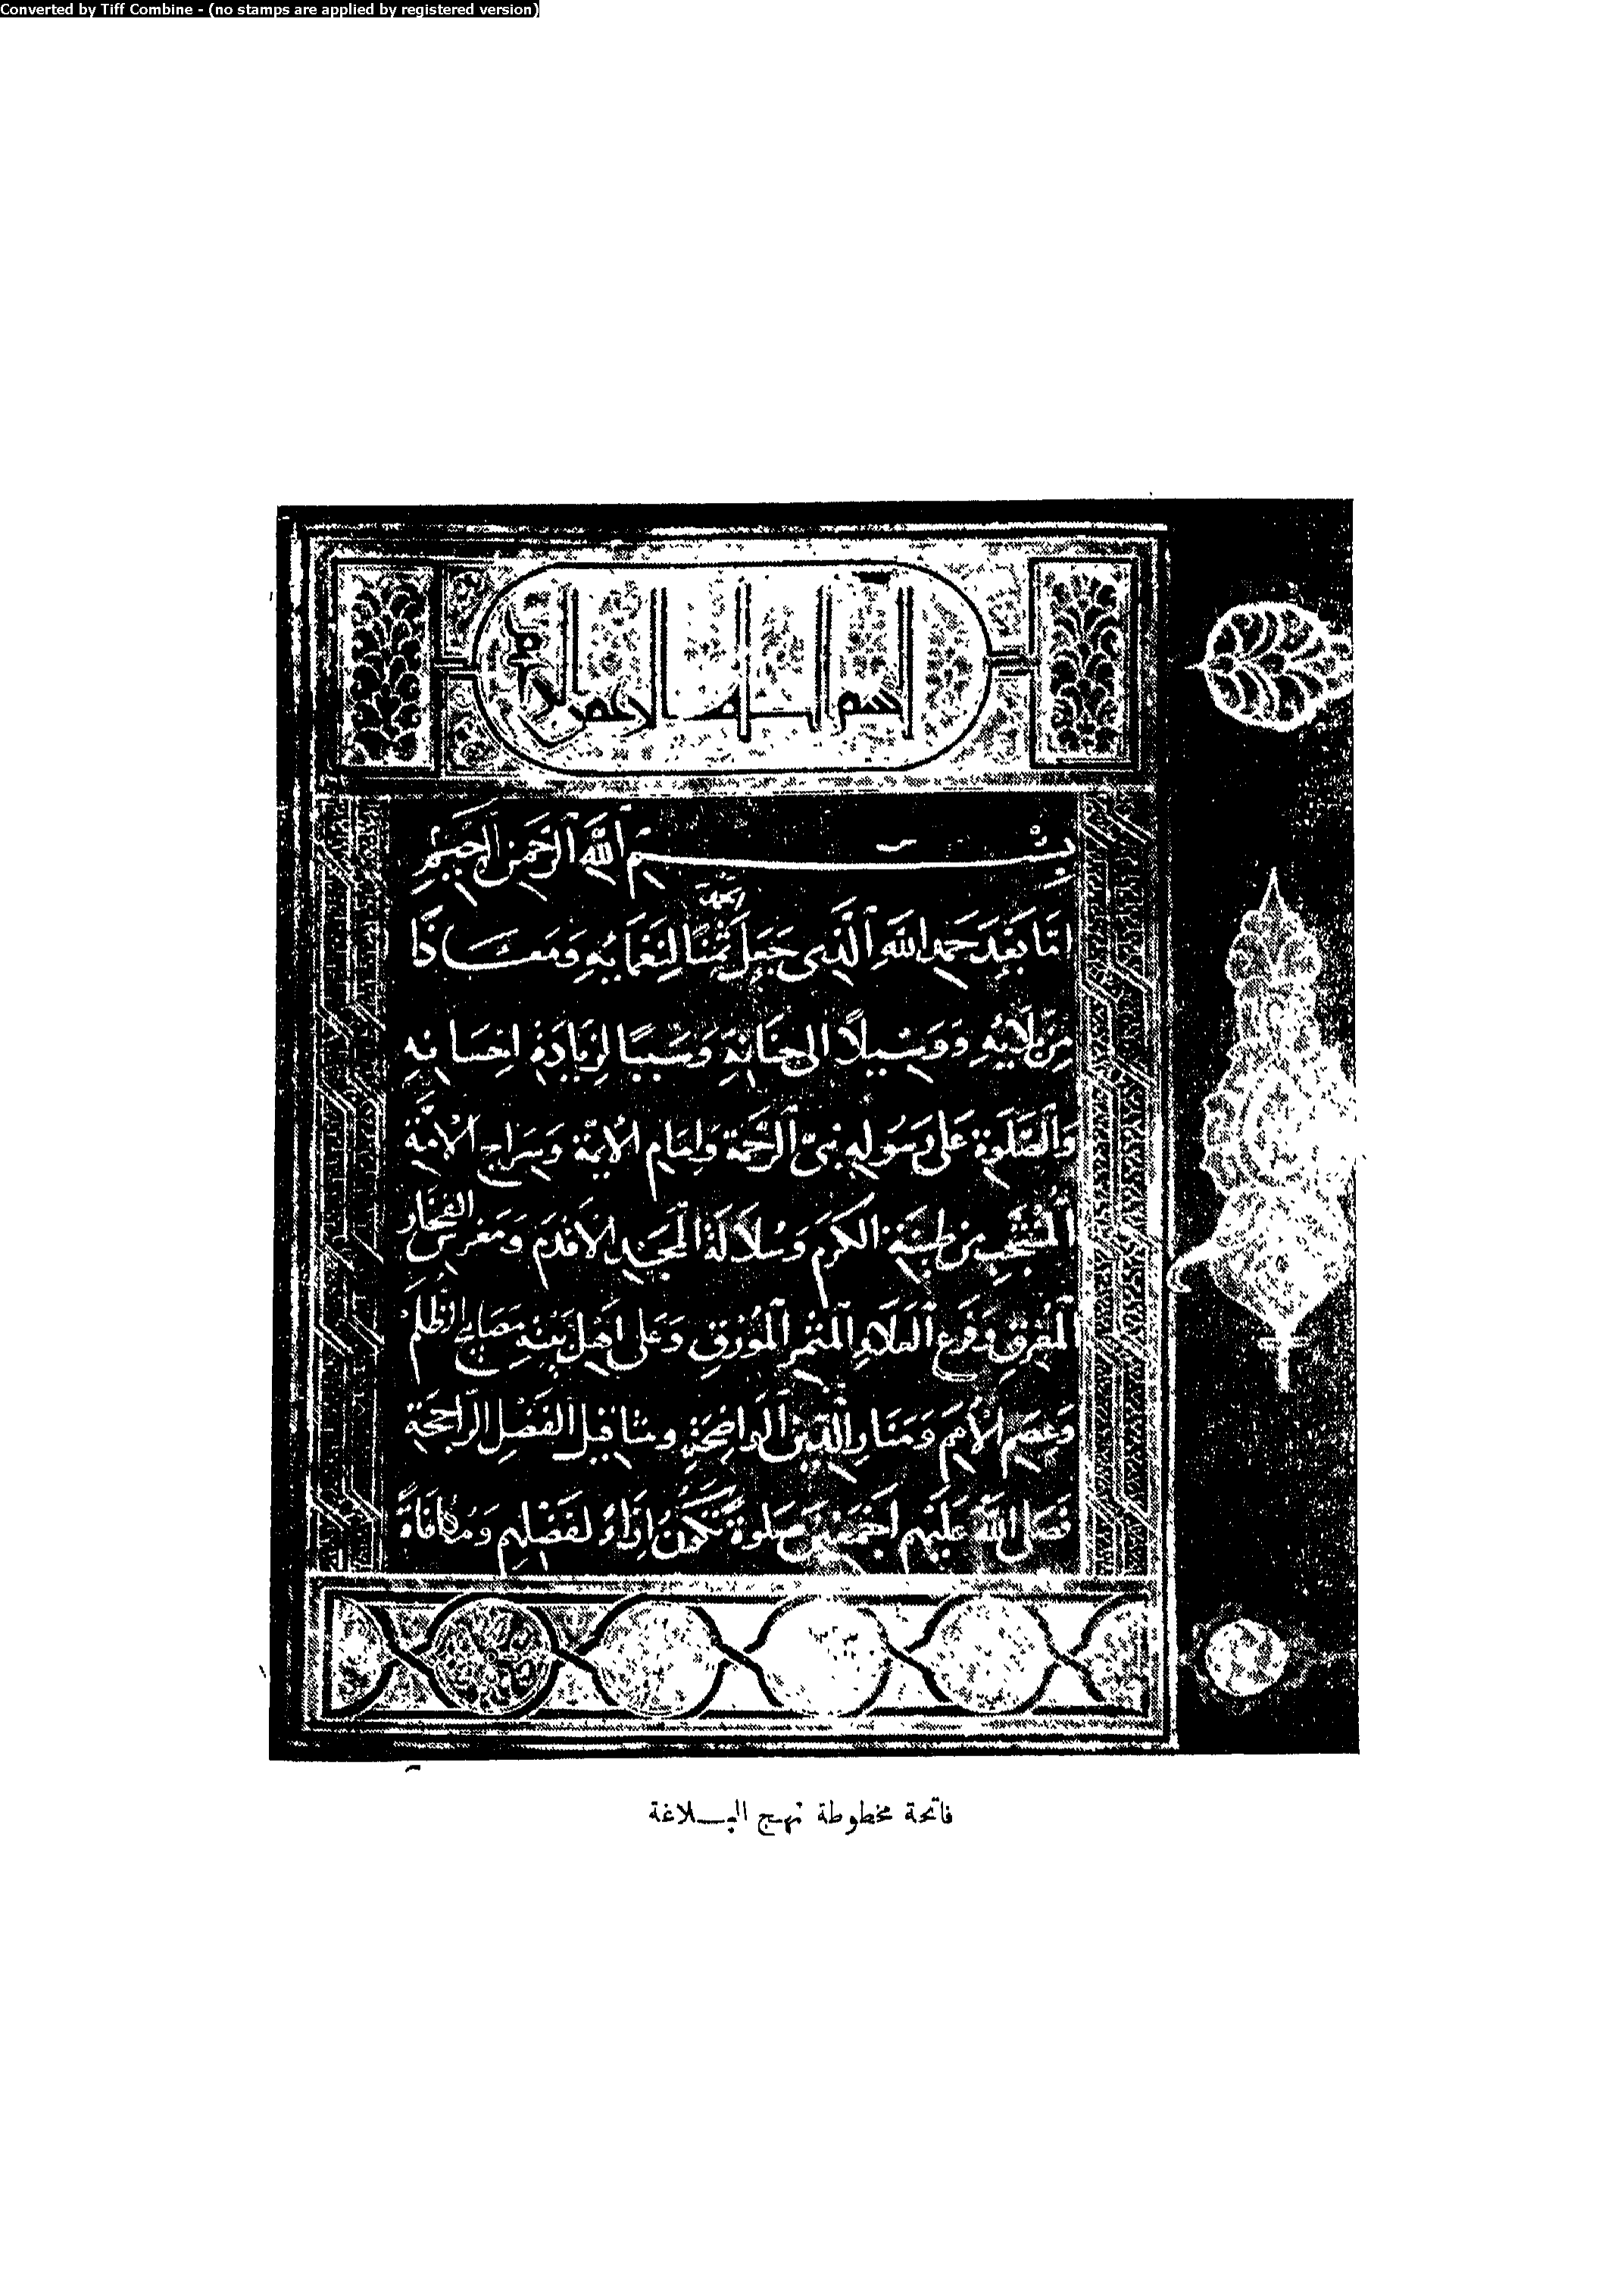 Converted by Tiff Combine - (no stamps are applied by registered version)
بِسْمِ اَللَّهِ اَلرَّحْمَنِ اَلرَّحِيمِ
اَمَّا بَعْدَ حَمْدِ اللَّهِ اَلَّذِى جَعَلَ ثَمَنًا لِنَعْمَائِهِ وَمَعَاذًا
مِنْ بَلَائِهِ وَوَسِيلًا الى جِنَانِهِ وَسَبَبًا لِزِيَادَةِ اِحْسَانِهِ
وَاَلصَّلَوةِ عَلَى رَسُولِهِ نَبِىِّ اَلرَّحْمَةِ وَاِمَامِ الْاَئِمَّةِ وَسِرَاجِ الْاُمَّةِ
اَلْمُنْتَجَبِ مِنْ طِينَةِ الْكَرَمِ وَسُلَالَةِ الْمَجْدِ الْاَقْدَمِ وَمَغْرِسِ الْفَخَارِ
اَلْمُعْرِقِ وَفَرْعِ اَلْعَلَاءِ اَلْمُثْمِرِ اَلْمُوْرِقِ وَعَلَى اَهْلِ بَيْتِهِ مَصَابِيحِ الظُّلَمِ
وَعِصَمِ الْاُمَمِ وَمَنَارِ اَلدِّينِ اَلْوَاضِحَةِ وَمَثَاقِيلِ الْفَضْلِ اَلرَّاجِحَةِ
فَصَلَّى اللَّهُ عَلَيْهِمْ اَجْمَعِينَ صَلَوةً تَكُونُ اِزَاءً لِفَضْلِهِمْ وَمُكَافَاةً
فاتحة مخطوطة نهج البـلاغة